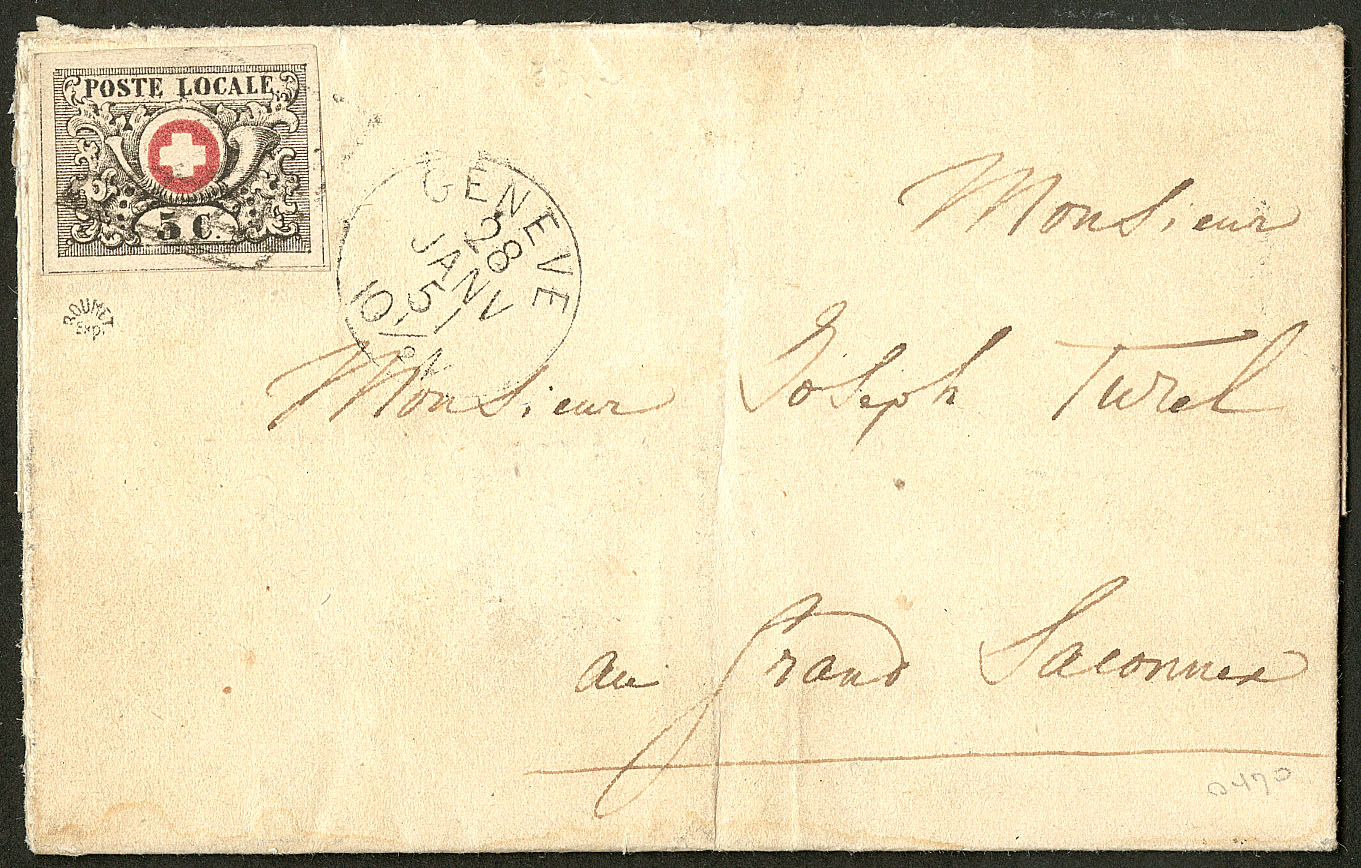 POSTE LOCALE
5 C.
GENEVE
28
JANV
51
ROUMET
EXP.
Monsieur
Monsieur Joseph Turel
au Grand Saconnex
0470